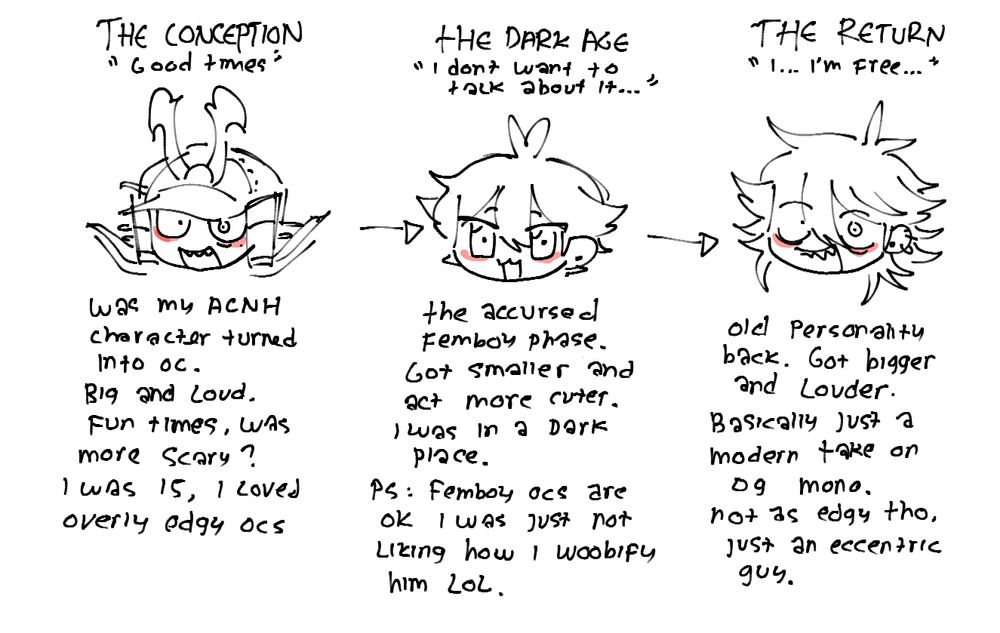 THE CONCEPTION
"Good times"
was my ACNH
character turned
into oc.
Big and Loud.
Fun times, was
more scary?
I was 15, I Loved
overly edgy ocs
tHE DARK AGE
"I dont want to
talk about it..."
the accursed
Femboy phase.
Got smaller and
act more cuter.
I was in a Dark
place.
Ps: Femboy ocs are
ok I was just not
Liking how I woobify
him LoL.
THE RETURN
"I... I'm Free..."
old Personality
back. Got bigger
and Louder.
Basically just a
modern take on
og mono.
not as edgy tho,
just an eccentric
guy.